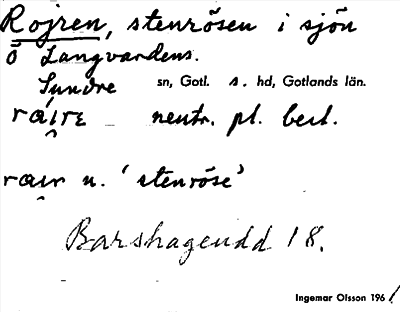 Rojren, stenrösen i sjön
ö Langvardens.
Sundre sn, Gotl. s. hd, Gotlands län.
neutr. pl. best.
n. 'stenröse'
Barshageudd 18.
Ingemar Olsson 1961